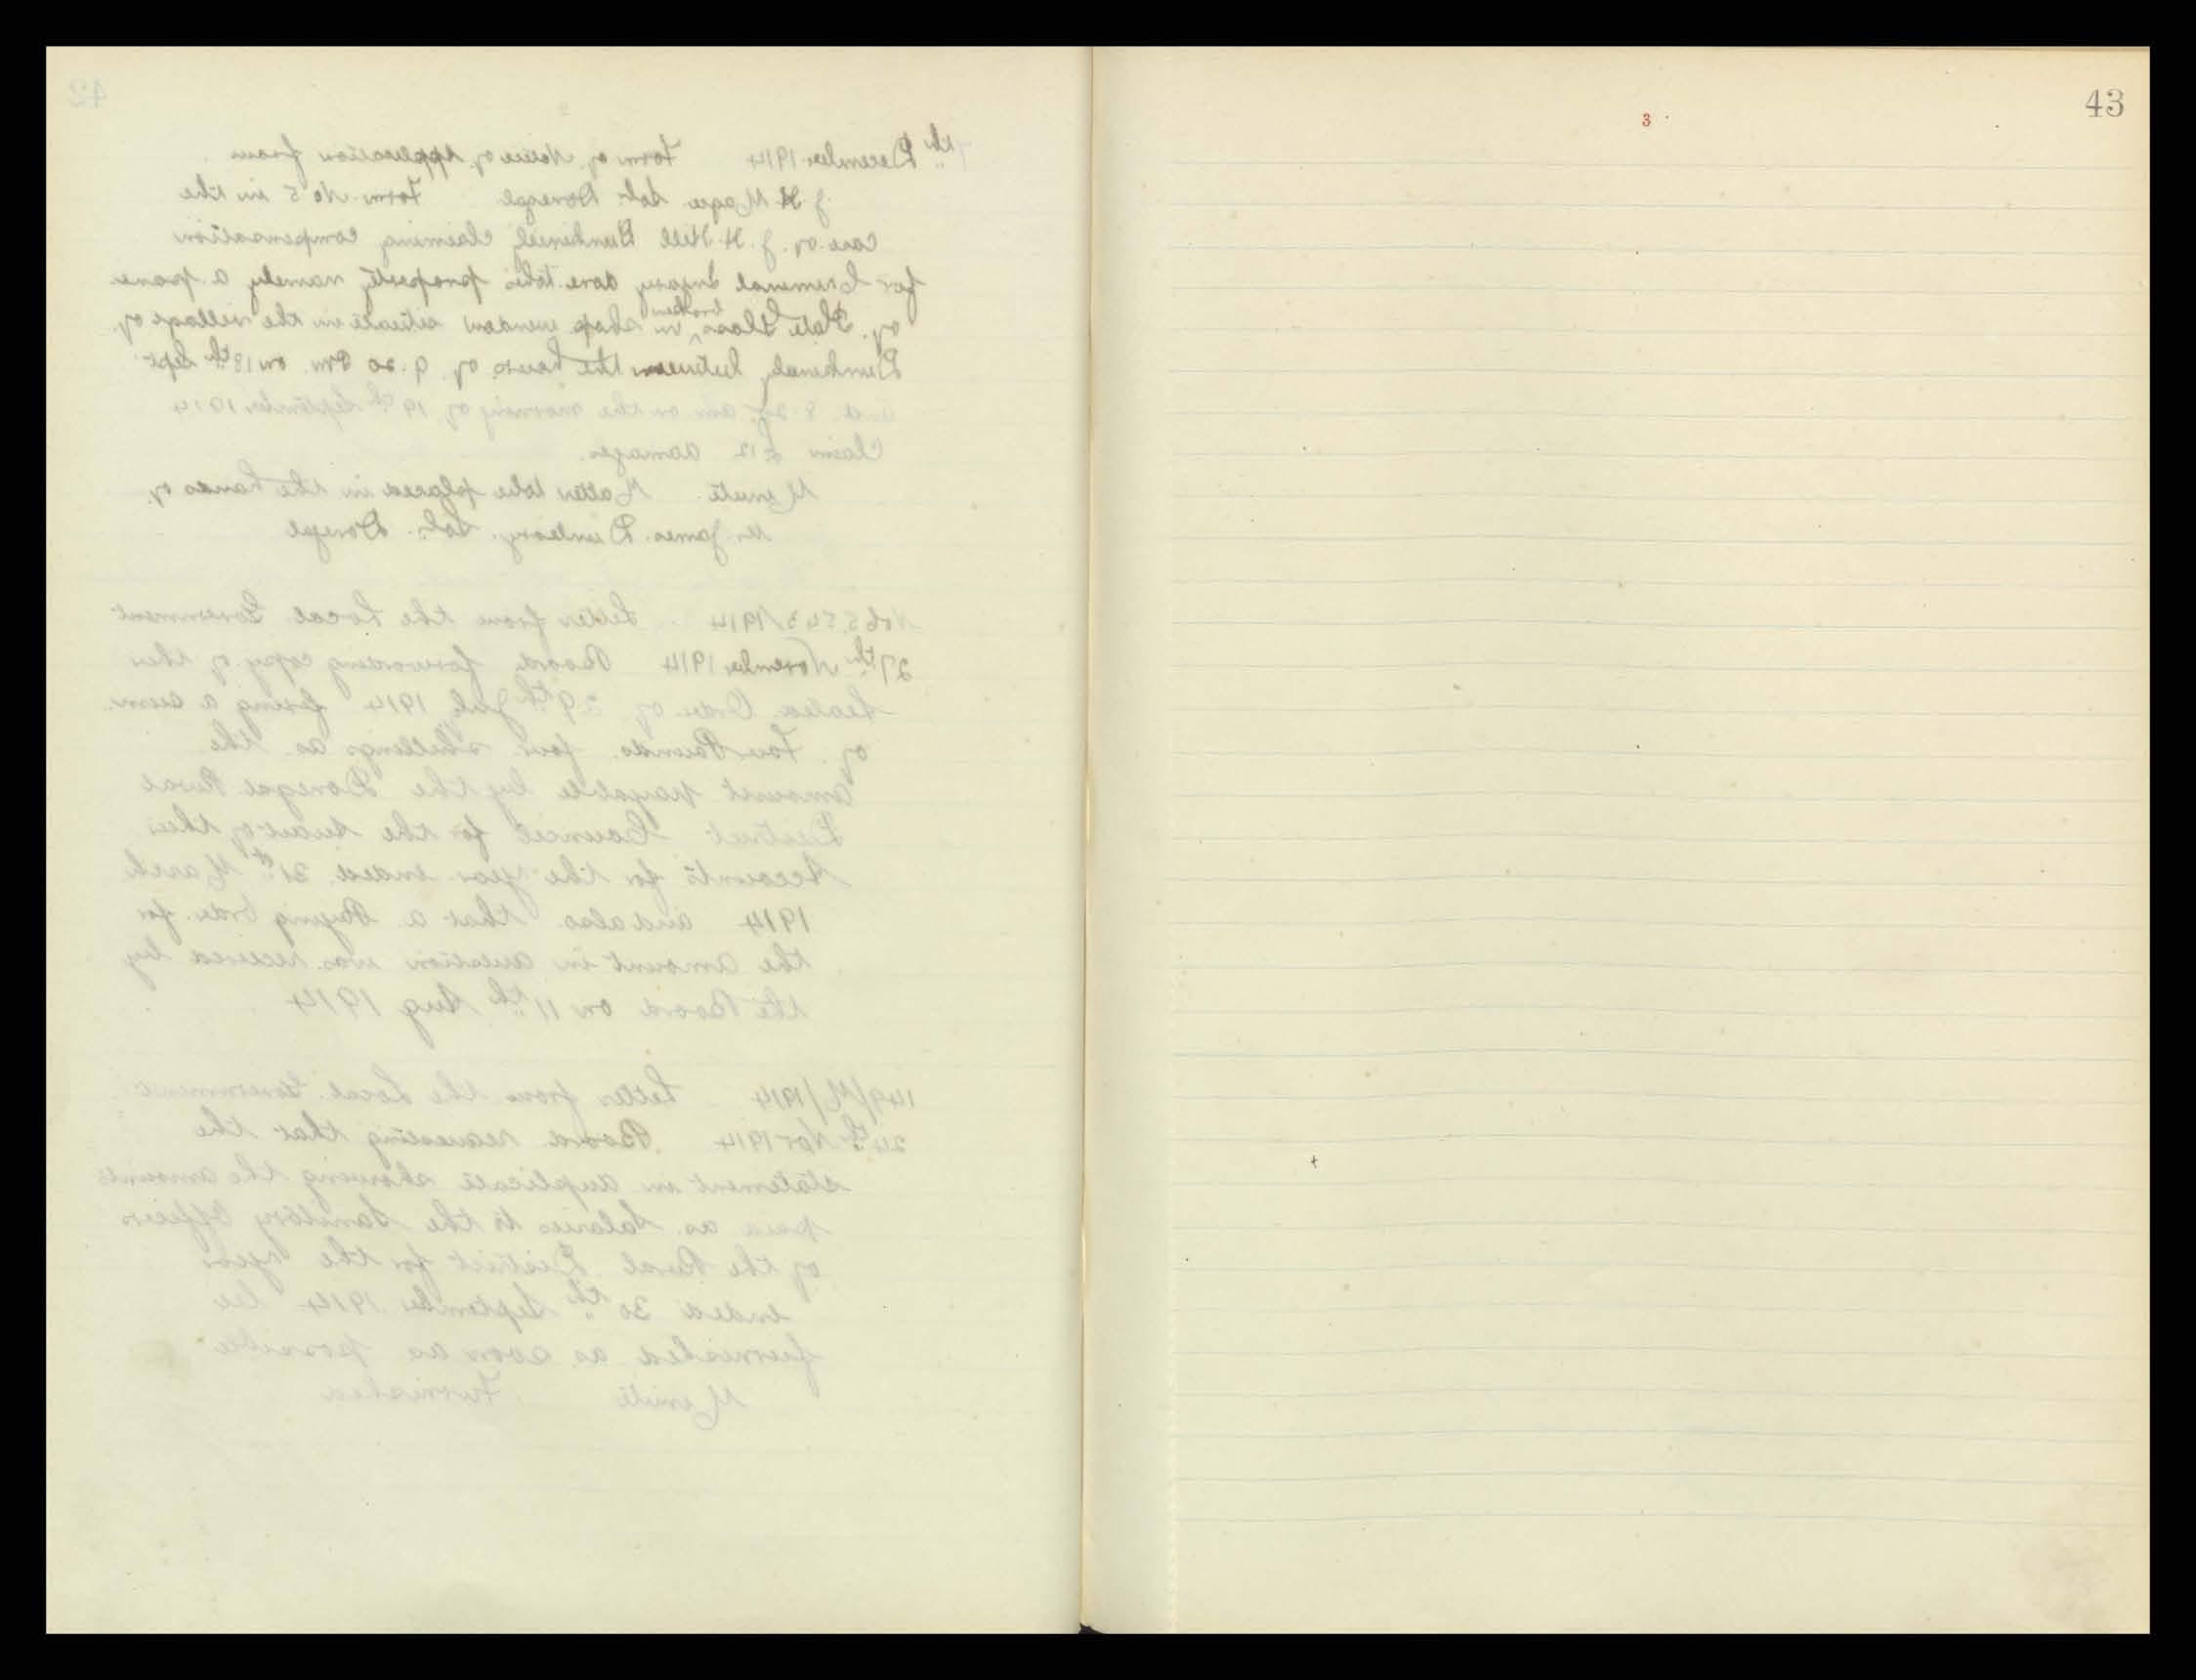 42
7th December 1914 Form of Notice of Application from
J H Magee Solr Donegal Form No 5 in the
case of J. H. Hill Dunkineely claiming compensation
for Criminal Injury done to his property namely a pane
of Plate Glass broken in shop window situate in the village of
Dunkineely between the hours of 9.20 PM on 18th Sept
and 8 am on the morning of 19th September 1914
Claim £12 damages.
Minute Matter to be placed in the hands of
Mr James Dunlevy. Solr. Donegal
No 65543/1914 Letter from the Local Government
27th November 1914 Board forwarding copy of their
Sealed Order of 29th July 1914 fixing a sum
of Four Pounds four shillings as the
amount payable by the Donegal Rural
District Council for the Audit of their
Accounts for the year ended 31st March
1914 and also that a Paying Order for
the amount in question was received by
the Board on 11th Aug 1914
149/M/1914 Letter from the Local Government
24th Nov 1914 Board requesting that the
statement in duplicate showing the amounts
paid as Salaries to the Sanitary Officers
of the Rural District for the year
ended 30th September 1914 be
furnished as soon as possible
Minute Furnished
43
3